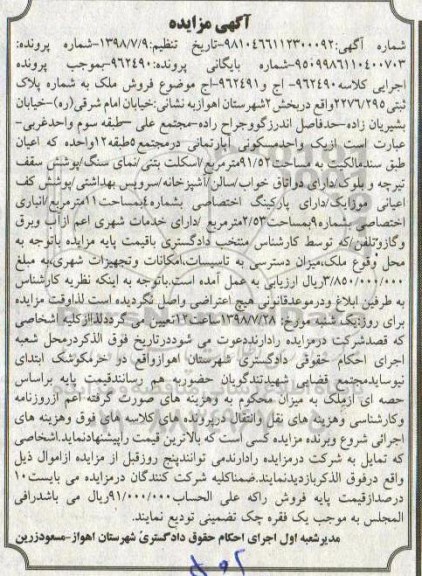 آگهی مزایده
شماره آگهی:۹۸۱۰۴۶۶۱۱۲۳۰۰۰۹۲-تاریخ تنظیم:۱۳۹۸/۷/۹-شماره پرونده:
۹۵۰۹۹۸۶۱۱۰۴۰۰۷۰۳-شماره بایگانی پرونده:۹۶۲۴۹۰-بموجب پرونده
اجرایی کلاسه۹۶۲۴۹۰- اج و۹۶۲۴۹۱-اج موضوع فروش ملک به شماره پلاک
ثبتی۲۲۷۶/۲۹۵واقع دربخش۲شهرستان اهوازبه نشانی:خیابان امام شرقی(ره)-خیابان
بشیریان زاده-حدفاصل اندرزگووجراح زاده-مجتمع علی -طبقه سوم واحدغربی-
عبارت است ازیک واحدمسکونی آپارتمانی درمجتمع۵طبقه۱۲واحده که اعیان
طبق سندمالکیت به مساحت۹۱/۵۲مترمربع/اسکلت بتنی/نمای سنگ/پوشش سقف
تیرچه و بلوک/دارای دواتاق خواب/سالن/آشپزخانه/سرویس بهداشتی/پوشش کف
اعیانی موزایک/دارای پارکینگ اختصاصی بشماره۴بمساحت۱۱مترمربع/انباری
اختصاصی بشماره۹بمساحت۲/۵۳مترمربع /دارای خدمات شهری اعم ازآب وبرق
وگازوتلفن/که توسط کارشناس منتخب دادگستری باقیمت پایه مزایده باتوجه به
محل وقوع ملک،میزان دسترسی به تاسیسات،امکانات وتجهیزات شهری،به مبلغ
۳/۸۵۰/۰۰۰/۰۰۰ریال ارزیابی به عمل آمده است.باتوجه به اینکه نظریه کارشناس
به طرفین ابلاغ ودرموعدقانونی هیچ اعتراضی واصل نگردیده است لذاوقت مزایده
برای روز:یک شنبه مورخ: ۱۳۹۸/۷/۲۸ساعت۱۲تعیین می گرددلذاازکلیه اشخاصی
که قصدشرکت درمزایده رادارنددعوت می شوددرتاریخ فوق الذکردرمحل شعبه
اجرای احکام حقوقی دادگستری شهرستان اهوازواقع در خرمکوشک ابتدای
نیوسایدمجتمع قضایی شهیدتندگویان حضوربه هم رسانندقیمت پایه براساس
حصه ای ازملک به میزان محکوم به وهزینه های صورت گرفته اعم ازروزنامه
وکارشناسی وهزینه های نقل وانتقال درپرونده های کلاسه های فوق وهزینه های
اجرائی شروع وبرنده مزایده کسی است که بالاترین قیمت راپیشنهادنماید.اشخاصی
که تمایل به شرکت درمزایده رادارندمی توانندپنج روزقبل از مزایده ازاموال ذیل
واقع درفوق الذکربازدیدنمایند.ضمناکلیه شرکت کنندگان درمزایده می بایست۱۰
درصدازقیمت پایه فروش راکه علی الحساب۹۱/۰۰۰/۰۰۰ریال می باشددرافی
المجلس به موجب یک فقره چک تضمینی تودیع نمایند.
مدیرشعبه اول اجرای احکام حقوق دادگستری شهرستان اهواز-مسعودزرین